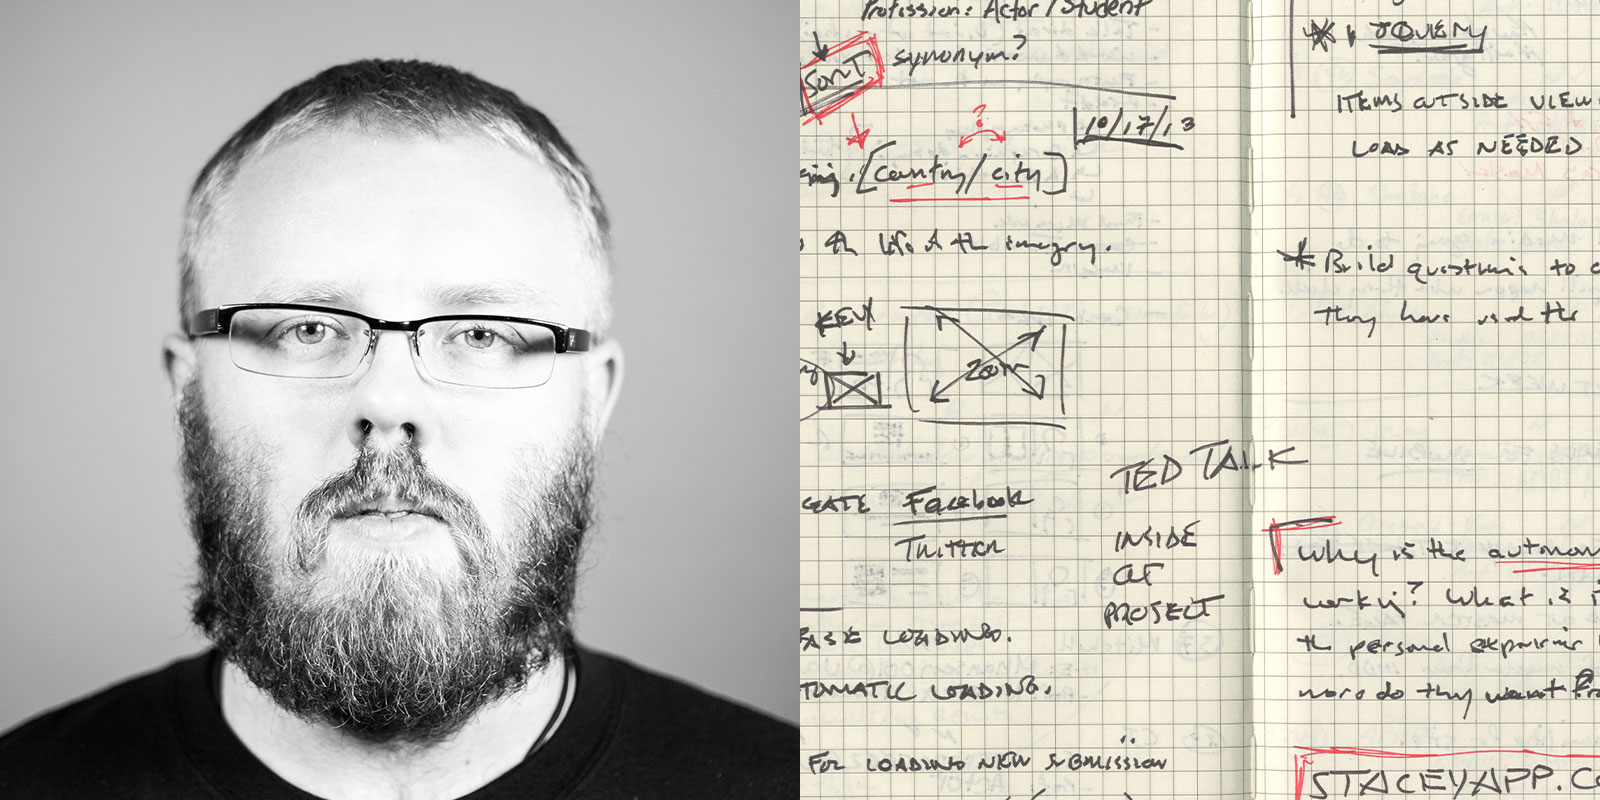 Profission: Actor / Student
SORT synonym?
10/17/13
[Country / city]
?
the life of the imagery.
KEY
Zoom
TED TALK
GATE Facebook
Twitter
INSIDE
OF
PROJECT
LOADING.
TOMATIC LOADING.
FOR LOADING NEW SUBMISSION
* JQUERY
ITEMS OUTSIDE VIEW
LOAD AS NEEDED
* Build questions to
They have used the
Why is the autonom
working? What is i
the personal
more do they want
STACEYAPP.CO